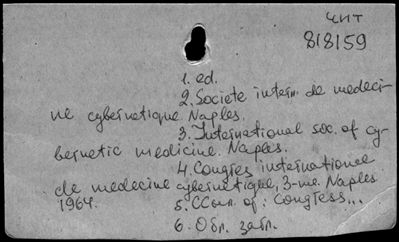 ЧИТ
818159
1. ed.
2. Societe intern. de medeci-
ne cybernetique. Naples.
3. International soc. of cy-
bernetic medicine. Naples.
4. Congres internationee
de medecine cybernetique, 3-me. Naples
1964.
5. of: Congress...
6. Обл. загл.